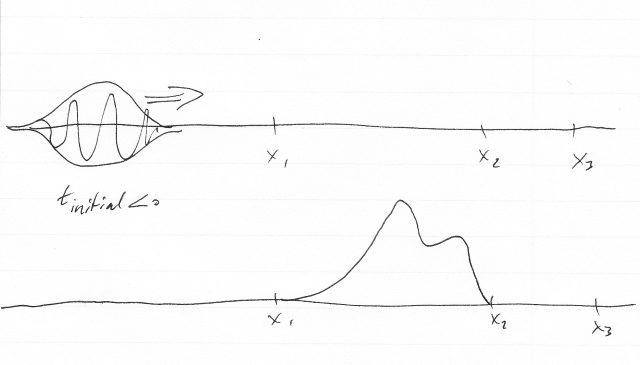 x₁ x₂ x₃
t initial < 0
x₁ x₂ x₃